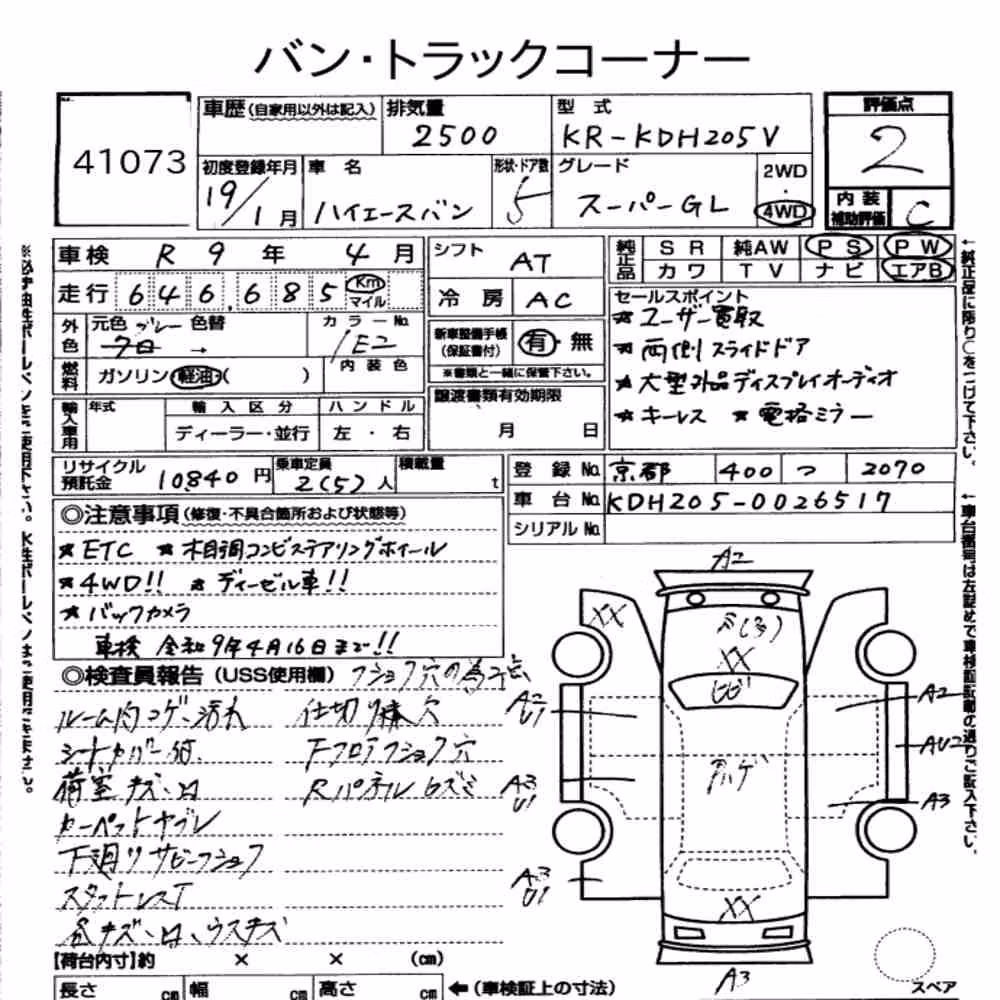 バン・トラックコーナー
41073
車歴(自家用以外は記入) 排気量 2500 型式 KR-KDH205V 評価点 2
初度登録年月 19/1月 車名 ハイエースバン 形状・ドア数 5 グレード スーパーGL 2WD・4WD 内装補助評価 C
車検 R9年 4月 シフト AT 純正品 SR 純AW PS PW
カワ TV ナビ エアB
走行 646,685 Km マイル 冷房 AC
外色 元色 グレー 色替 → カラーNo. 1E2 新車整備手帳(保証書付) 有・無
※書類と一緒に保管下さい。
燃料 ガソリン・軽油・( ) 内装色
譲渡書類有効期限 月 日
輸入車用 年式 輸入区分 ハンドル
ディーラー・並行 左・右
セールスポイント
★ユーザー買取
★両側スライドドア
★大型外品ディスプレイオーディオ
★キーレス ★電格ミラー
リサイクル預託金 10840円 乗車定員 2(5)人 積載量 t
登録No. 京都 400 つ 2070
車台No. KDH205-0026517
シリアルNo.
◎注意事項(修復・不具合箇所および状態等)
★ETC ★木目調コンビステアリングホイール
★4WD!! ★ディーゼル車!!
★バックカメラ
車検 令和9年4月16日まで!!
◎検査員報告(USS使用欄)
ルーム内コゲ、汚れ 仕切り棒穴
シートカバー 下フロアフショク穴
荷室キズ・凹 Rパネルクズミ
カーペットヤブレ
下廻りサビ・フショク
スタットレスT
各キズ・凹・ウスキズ
A2
XX
XX
ヒビ
A2 U1
A2
AU2
コゲ
A3 U1
A3
A3 U1
XX
A3
スペア
【荷台内寸】約 × × (cm)
長さ cm 幅 cm 高さ cm ←(車検証上の寸法)
※必ず油性ボールペンを使用下さい。水性ボールペンはご使用できません。
←純正品に限り○をつけて下さい。
←車台番号は左詰めで車検証記載の通りご記入下さい。